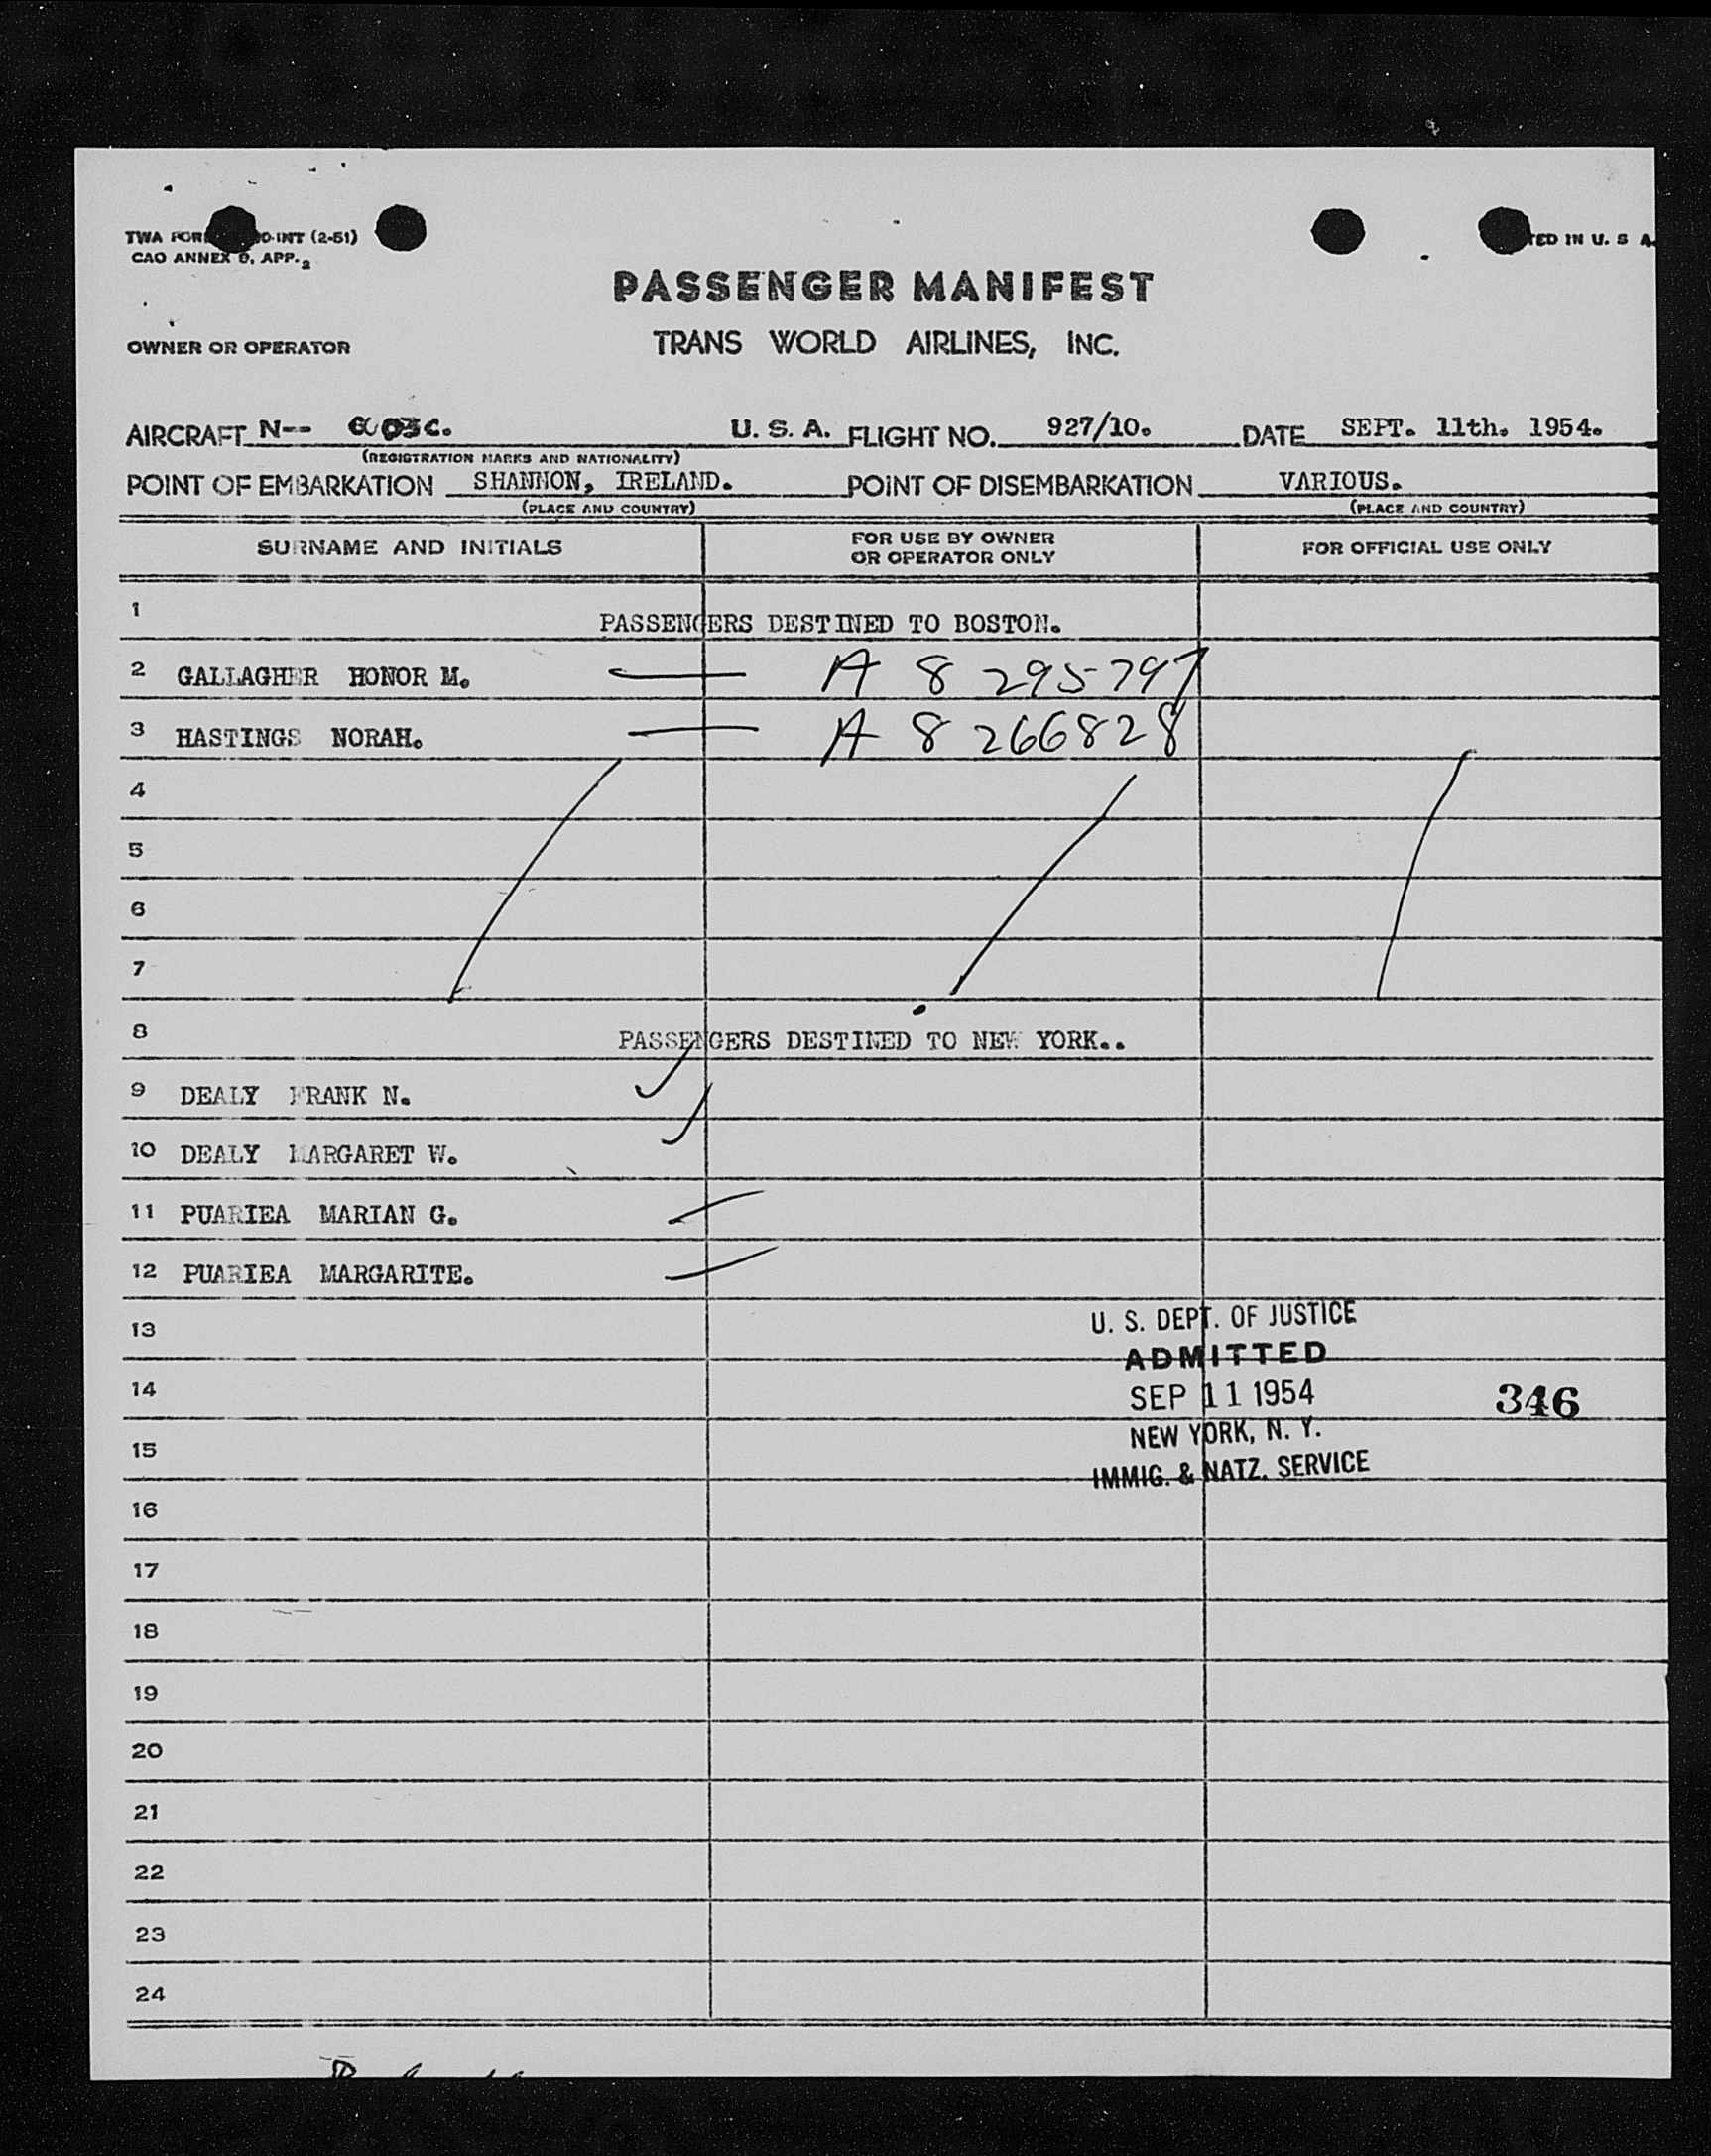 TWA FORM INT (2-51)
CAO ANNEX 9, APP. 2
TED IN U. S A.
PASSENGER MANIFEST
OWNER OR OPERATOR
TRANS WORLD AIRLINES, INC.
AIRCRAFT N-- U. S. A. FLIGHT NO. 927/10. DATE SEPT. 11th. 1954.
(REGISTRATION MARKS AND NATIONALITY)
POINT OF EMBARKATION SHANNON, IRELAND. POINT OF DISEMBARKATION VARIOUS.
(PLACE AND COUNTRY) (PLACE AND COUNTRY)
SURNAME AND INITIALS FOR USE BY OWNER OR OPERATOR ONLY FOR OFFICIAL USE ONLY
1 PASSENGERS DESTINED TO BOSTON.
2 GALLAGHER HONOR M. A 8 295797
3 HASTINGS NORAH. A 8 266828
4
5
6
7
8 PASSENGERS DESTINED TO NEW YORK..
9 DEALY FRANK N.
10 DEALY MARGARET W.
11 PUARIEA MARIAN G.
12 PUARIEA MARGARITE.
13
U. S. DEPT. OF JUSTICE
ADMITTED
14 SEP 11 1954 346
NEW YORK, N. Y.
15
IMMIG. & NATZ. SERVICE
16
17
18
19
20
21
22
23
24